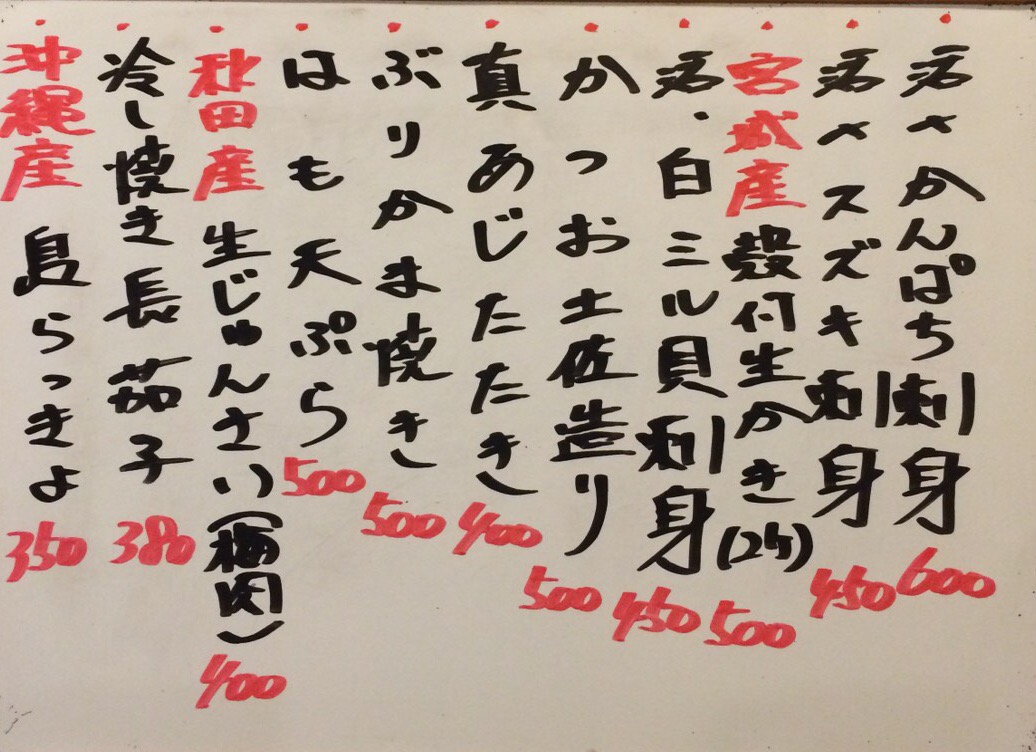 活〆かんぱち刺身 600
活〆スズキ刺身 450
宮城産 殻付生かき(2ヶ) 500
活・白ミル貝刺身 450
かつお土佐造り 500
真あじたたき 400
ぶりかま焼き 500
はも天ぷら 500
秋田産 生じゅんさい(梅肉) 400
冷し焼き長茄子 380
沖縄産 島らっきょ 350